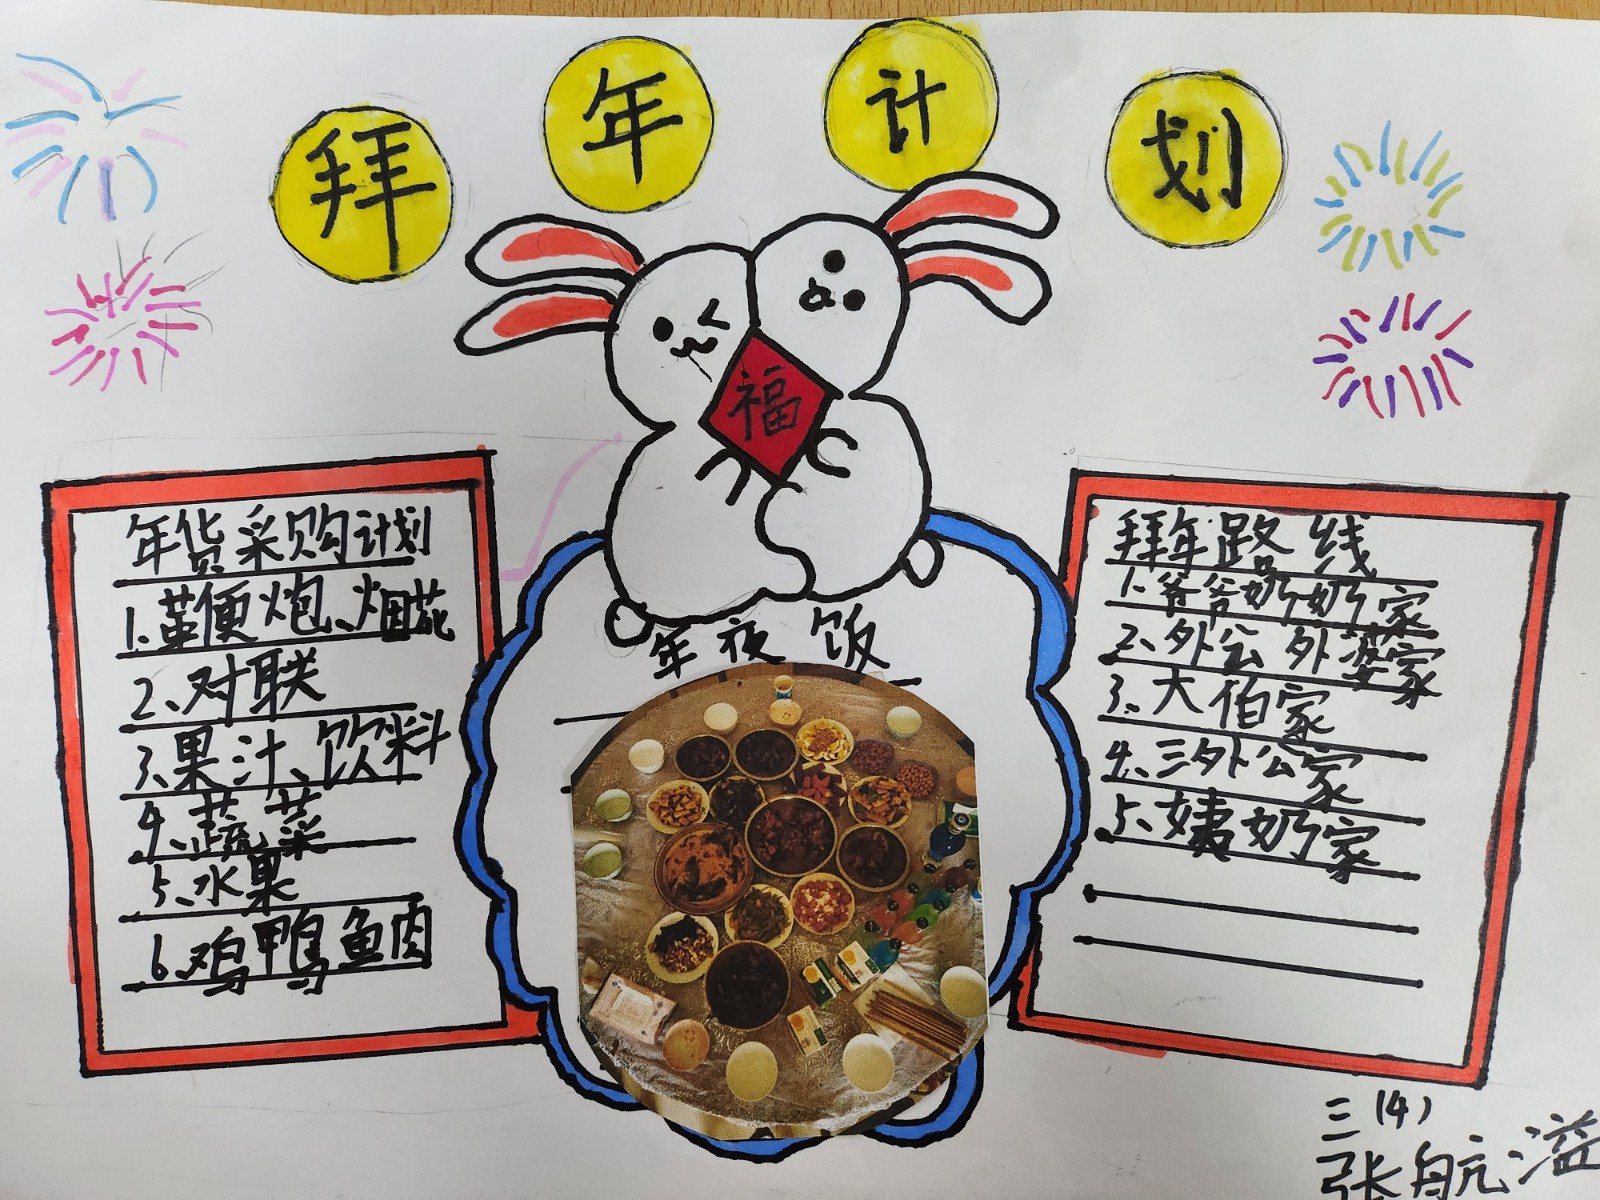 拜年计划
福
年货采购计划
1、革便炮、烟花
2、对联
3、果汁、饮料
4、蔬菜
5、水果
6、鸡鸭鱼肉
年夜饭
拜年路线
1、爷爷奶奶家
2、外公外婆家
3、大伯家
4、三外公家
5、姨奶家
三(4)
张航溢